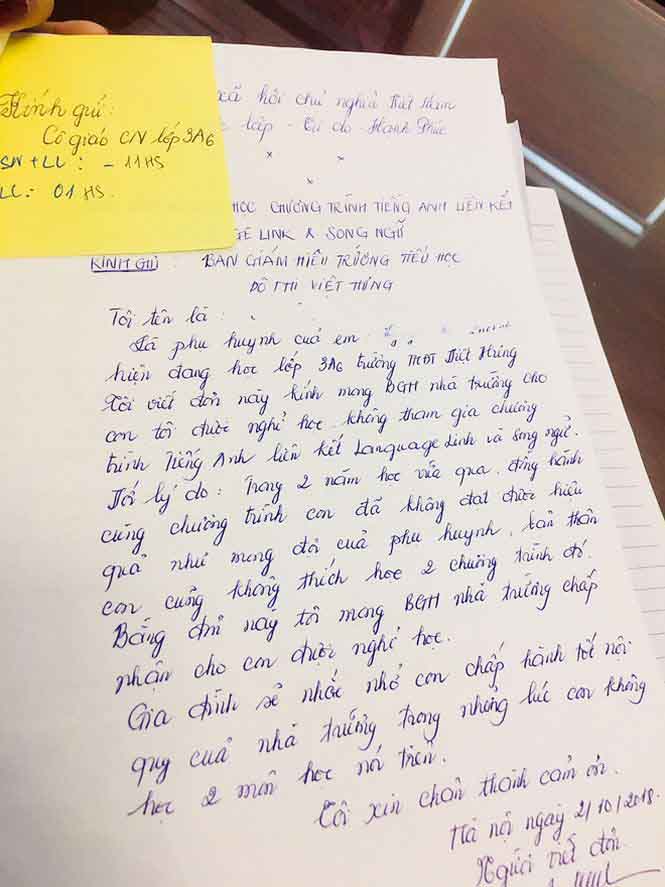 Kính gửi:
Cô giáo CN lớp 3A6
SN + LL : - 11 HS
LL: 01 HS.
xã hội chủ nghĩa Việt Nam
lập - Tự do - Hạnh Phúc
HỌC CHƯƠNG TRÌNH TIẾNG ANH LIÊN KẾT
GE LINK & SONG NGỮ
KÍNH GỬI : BAN GIÁM HIỆU TRƯỜNG TIỂU HỌC
ĐÔ THỊ VIỆT HƯNG
Tôi tên là :
Là phụ huynh của em :
hiện đang học lớp 3A6 trường Việt Hưng
Tôi viết đơn này kính mong BGH nhà trường cho
con tôi được nghỉ học không tham gia chương
trình Tiếng Anh liên kết Language Link và Song ngữ.
Với lý do : Trong 2 năm học vừa qua, đồng hành
cùng chương trình con đã không đạt được hiệu
quả như mong đợi của phụ huynh, bản thân
con cũng không thích học 2 chương trình đó.
Bằng đơn này tôi mong BGH nhà trường chấp
nhận cho con được nghỉ học.
Gia đình sẽ nhắc nhở con chấp hành tốt nội
quy của nhà trường trong những lúc con không
học 2 môn học nói trên.
Tôi xin chân thành cảm ơn.
Hà nội ngày 2/10/2018.
Người viết đơn